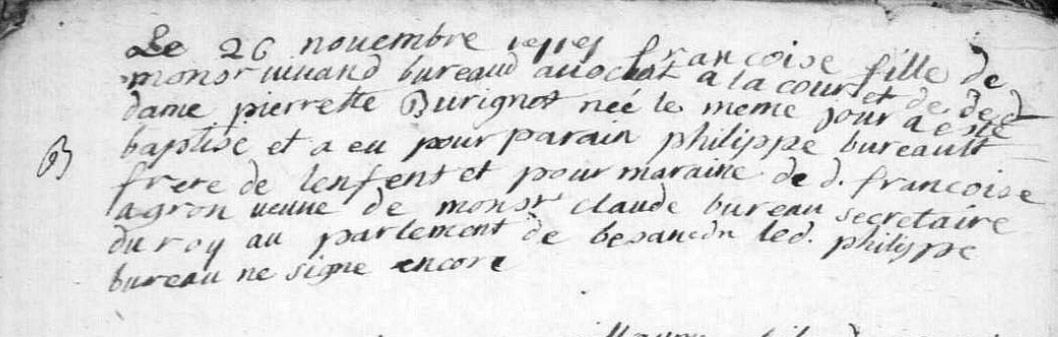 Le 26 novembre francoise fille de
monsr vivand bureaud avocat a la cour et de de d
dame pierrette Burignot neé le meme jour a esté
B baptise et a eu pour parain philippe bureault
frere de lenfent et pour maraine de d. francoise
agron veuve de monsr claude bureau secretaire
du roy au parlement de besancon led. philippe
bureau ne signe encore